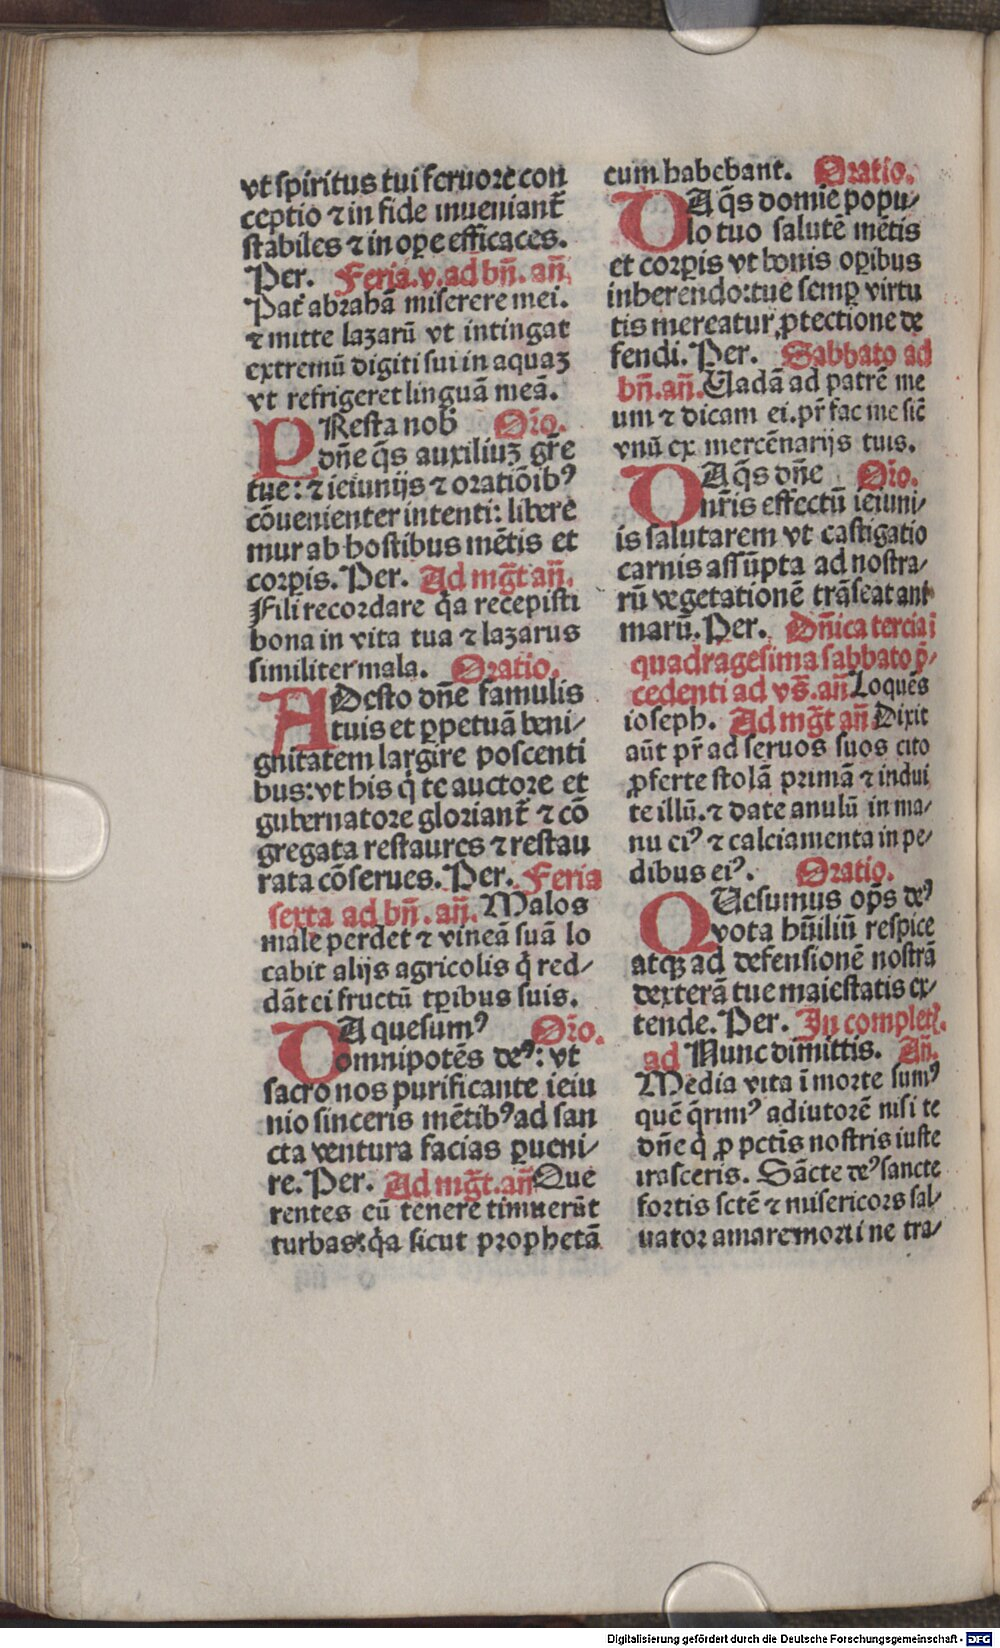 vt spiritus tui feruore con
ceptio ⁊ in fide inueniant̃
stabiles ⁊ in oꝑe efficaces.
Per. Feria.v.ad bñ. añ.
Pat̃ abrahã miserere mei.
⁊ mitte lazarũ vt intingat
extremũ digiti sui in aquaꝫ
vt refrigeret linguã meã.
PResta nob̃ Oro̅.
dñe q̃s auxiliuꝫ gr̃e
tue: ⁊ ieiunijs ⁊ oratiõibꝰ
cõuenienter intenti: libere
mur ab hostibus mẽtis et
corꝑis. Per. Ad mg̃t añ.
Fili recordare q̃a recepisti
bona in vita tua ⁊ lazarus
similiter mala. Oratio.
ADesto dñe famulis
tuis et ꝑpetuã beni/
gnitatem largire poscenti
bus: vt his q̃ te auctore et
gubernatore gloriant̃ ⁊ cõ
gregata restaures ⁊ restau
rata cõserues. Per. Feria
sexta ad bñ. añ. Malos
male perdet ⁊ vineã suã lo
cabit alijs agricolis q̃ red/
dãt ei fructũ tꝑibus suis.
DA quesumꝰ Oro̅.
omnipotẽs deꝰ: vt
sacro nos purificante ieiu
nio sinceris mẽtibꝰ ad san
cta ventura facias ꝑueni/
re. Per. Ad mg̃t. añ Que
rentes eũ tenere timuerũt
turbas: q̃a sicut prophetã
eum habebant. Oratio.
DA q̃s domie popu/
lo tuo salutẽ mẽtis
et corꝑis vt bonis oꝑibus
inherendo: tue semꝑ virtu
tis mereatur ꝓtectione de
fendi. Per. Sabbato ad
bñ. añ. Uadã ad patrẽ me
um ⁊ dicam ei. pr̃ fac me sic̃
vnũ ex mercẽnarijs tuis.
DA q̃s dñe Oro̅.
nr̃is effectũ ieiuni/
is salutarem vt castigatio
carnis assũpta ad nostra/
rũ vegetationẽ trãseat ani
marũ. Per. Dñica tercia i
quadragesima sabbato p̃/
cedenti ad vs̃. añ Loquẽs
ioseph. Ad mg̃t añ Dixit
aũt pr̃ ad seruos suos cito
ꝓferte stolã primã ⁊ indui
te illũ. ⁊ date anulũ in ma/
nu eiꝰ ⁊ calciamenta in pe/
dibus eiꝰ. Oratio.
QUesumus op̃s deꝰ
vota hũiliũ respice
atqꝫ ad defensionẽ nostrã
dexterã tue maiestatis ex/
tende. Per. In complet̃.
ad Nunc dimittis. Añ.
Media vita ĩ morte sumꝰ
quẽ q̃rimꝰ adiutorẽ nisi te
dñe q̃ ꝓ pctĩs nostris iuste
irasceris. Sãcte deꝰ sancte
fortis sctẽ ⁊ misericors sal/
uator amare morti ne tra/
Digitalisierung gefördert durch die Deutsche Forschungsgemeinschaft - DFG